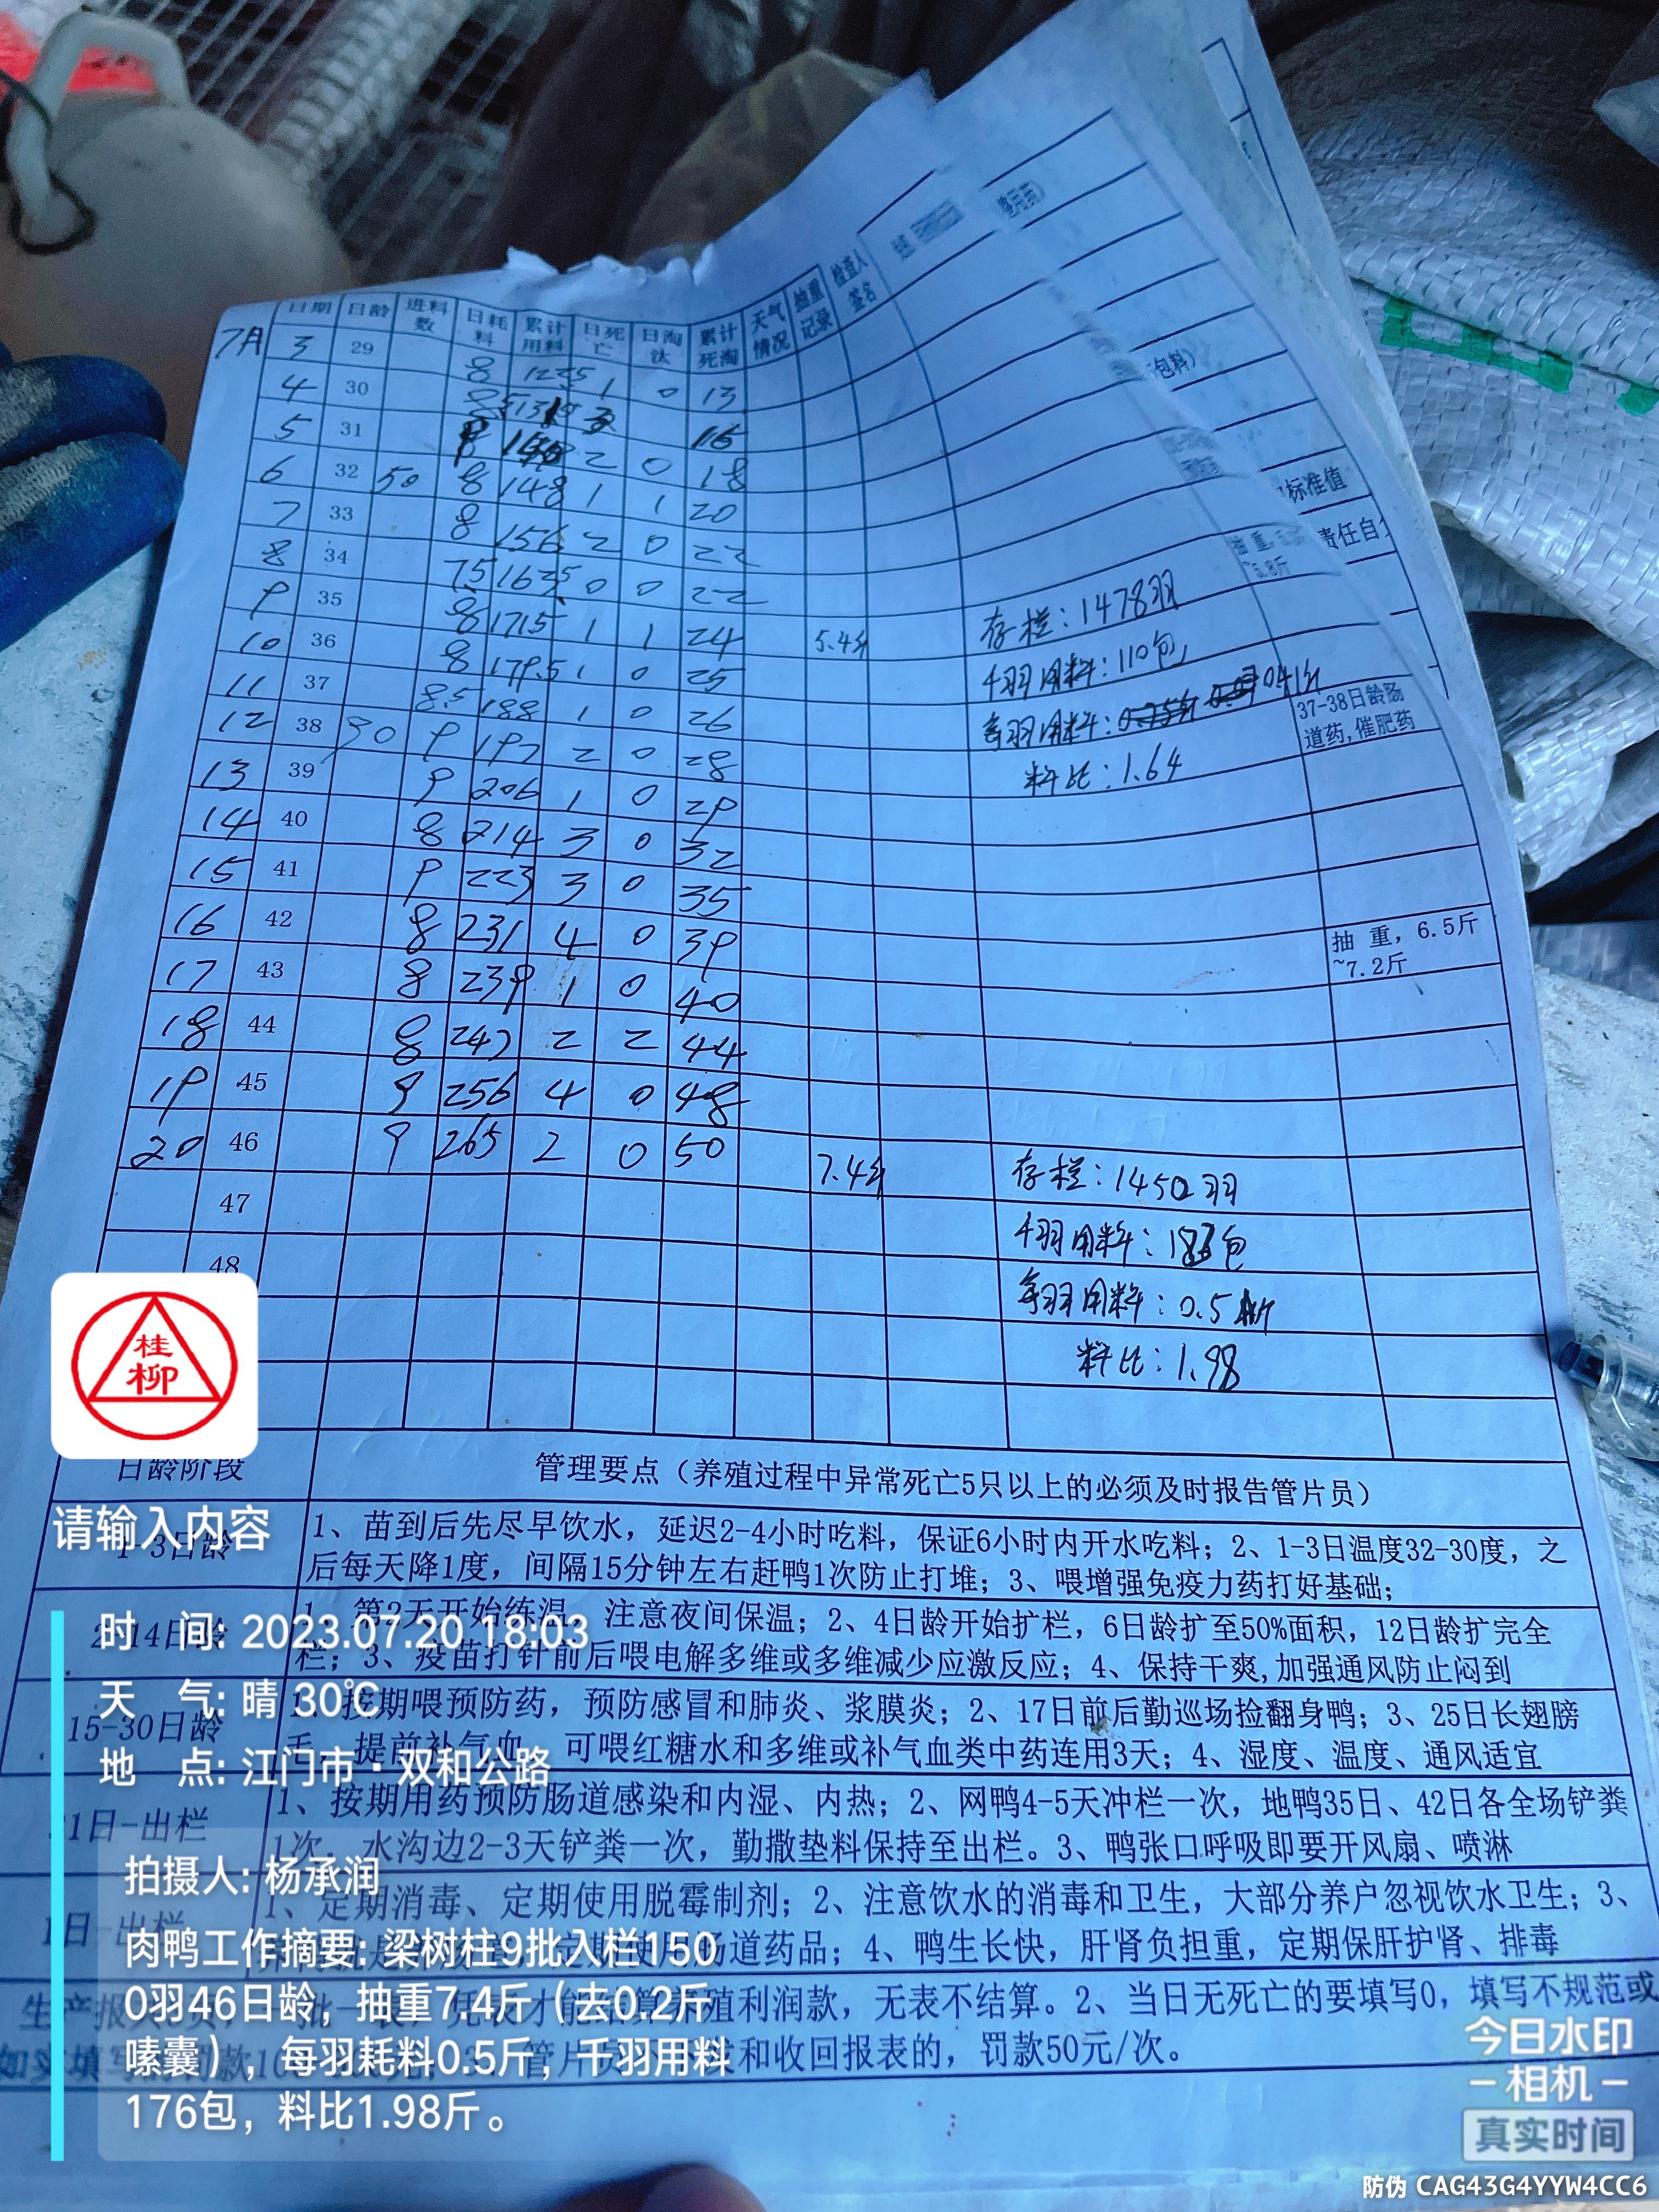 日期 日龄 进料数 日耗料 累计用料 日死亡 日淘汰 累计死淘 天气情况 抽重记录 检查人签名
7月 3 29 8 122.5 1 0 13
4 30 16
5 31 2 0 18
6 32 50 8 148 1 1 20
7 33 8 156 2 0 22
8 34 7.5 163.5 0 0 22
9 35 8 171.5 1 1 24 5.4斤 存栏：1478羽
10 36 8 179.5 1 0 25 千羽用料：110包
11 37 8.5 188 1 0 26 每羽用料： 0.41斤 37-38日龄肠
道药,催肥药
12 38 90 9 197 2 0 28 料比：1.64
13 39 9 206 1 0 29
14 40 8 214 3 0 32
15 41 9 223 3 0 35
16 42 8 231 4 0 39 抽 重，6.5斤
~7.2斤
17 43 8 239 1 0 40
18 44 8 247 2 2 44
19 45 9 256 4 0 48
20 46 9 265 2 0 50 7.4斤 存栏：1450羽
47 千羽用料： 包
48 每羽用料：0.5斤
料比：1.98
包料）
标准值
责任自
桂
柳
日龄阶段 管理要点（养殖过程中异常死亡5只以上的必须及时报告管片员）
请输入内容
1-3日龄 1、苗到后先尽早饮水，延迟2-4小时吃料，保证6小时内开水吃料；2、1-3日温度32-30度，之
后每天降1度，间隔15分钟左右赶鸭1次防止打堆；3、喂增强免疫力药打好基础；
14日龄 第2天开始练温，注意夜间保温；2、4日龄开始扩栏，6日龄扩至50%面积，12日龄扩完全
栏；3、疫苗打针前后喂电解多维或多维减少应激反应；4、保持干爽,加强通风防止闷到
15-30日龄 1、按期喂预防药，预防感冒和肺炎、浆膜炎；2、17日前后勤巡场捡翻身鸭；3、25日长翅膀
毛，提前补气血，可喂红糖水和多维或补气血类中药连用3天；4、湿度、温度、通风适宜
1日-出栏 1、按期用药预防肠道感染和内湿、内热；2、网鸭4-5天冲栏一次，地鸭35日、42日各全场铲粪
1次，水沟边2-3天铲粪一次，勤撒垫料保持至出栏。3、鸭张口呼吸即要开风扇、喷淋
1日-出栏 1、定期消毒、定期使用脱霉制剂；2、注意饮水的消毒和卫生，大部分养户忽视饮水卫生；3、
肠道药品；4、鸭生长快，肝肾负担重，定期保肝护肾、排毒
生产报 利润款，无表不结算。2、当日无死亡的要填写0，填写不规范或
如实填写 和收回报表的，罚款50元/次。
时 间: 2023.07.20 18:03
天 气: 晴 30℃
地 点: 江门市·双和公路
拍摄人: 杨承润
肉鸭工作摘要: 梁树柱9批入栏150
0羽46日龄，抽重7.4斤（去0.2斤
嗉囊），每羽耗料0.5斤，千羽用料
176包，料比1.98斤。
今日水印
相机
真实时间
防伪 CAG43G4YYW4CC6